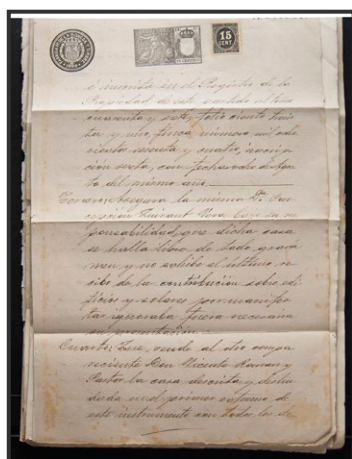 15
CENT.
é inscrita en el Registro de la
Propiedad de este partido al tomo
cuarenta y siete, folio ciento
ta y uno, finca número mil
ciento y cuatro, inscrip
ción sexta, con fecha de
to del mismo año
Tercero: Asegura la misma D.ª
cepción bajo su res
ponsabilidad, que dicha casa
se halla libre de todo gravá
men y no exhibe el último re
cibo de la contribución sobre edi
ficios y solares por manifes
tar ignoraba fuera necesaria
su presentación
Cuarto: Que vende al otro compa
reciente Don Vicente Roman y
Pastor la casa descrita y deslin
dada en el primer extremo de
este instrumento con todos los de